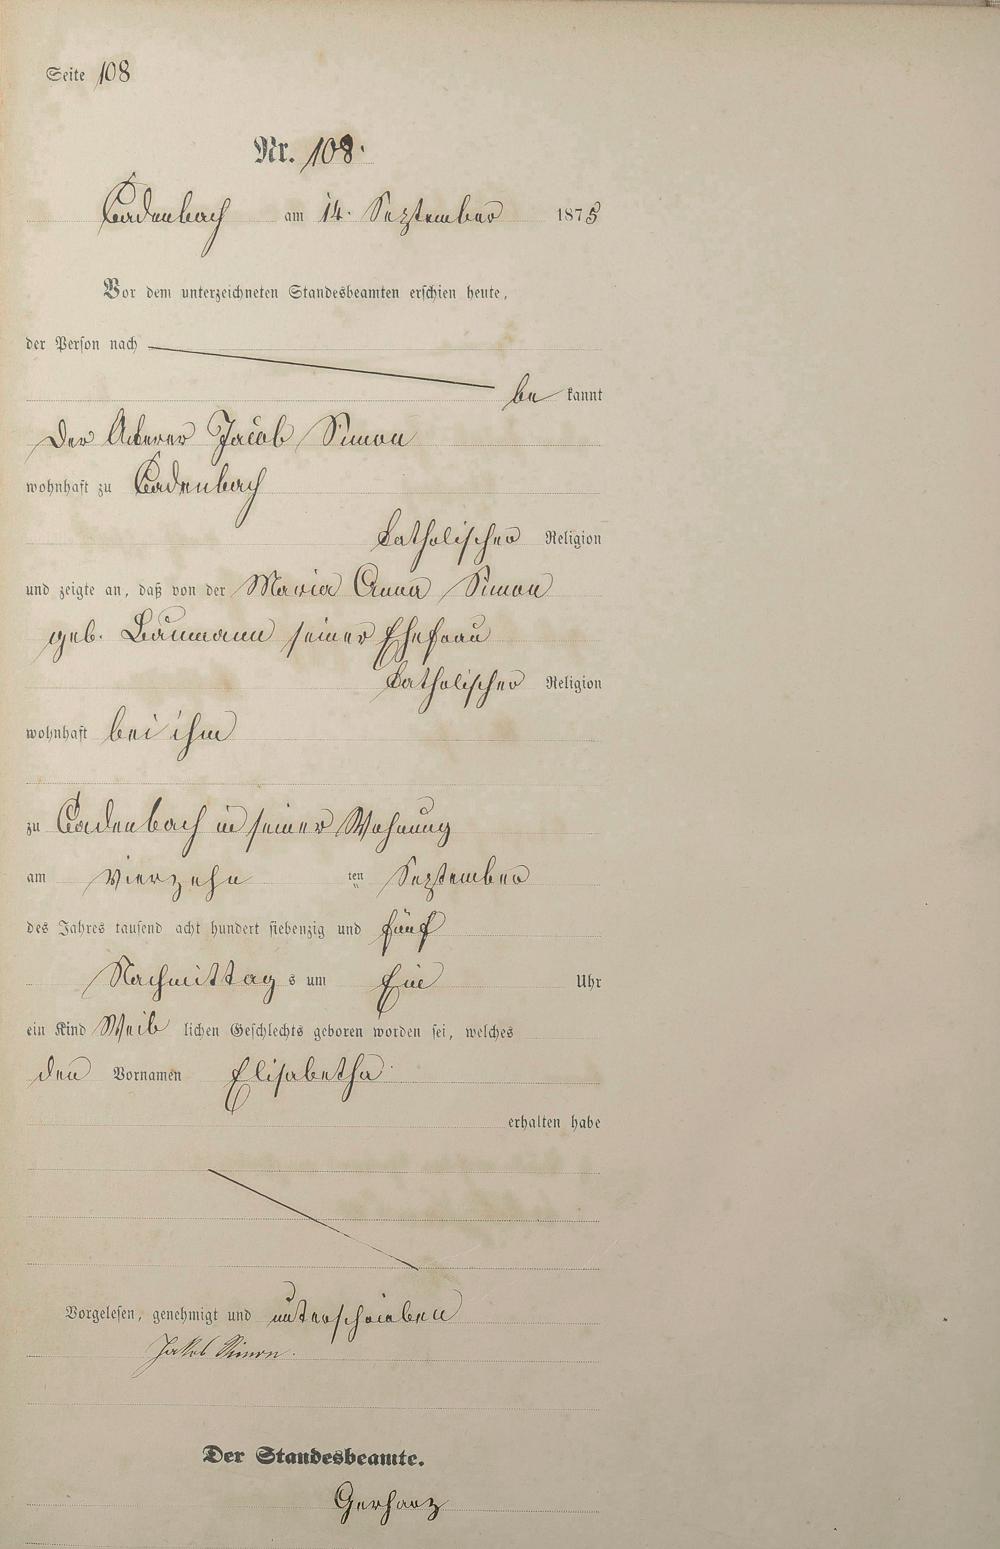 Seite 108
Nr. 108.
Cadenbach am 14. September 1875
Vor dem unterzeichneten Standesbeamten erschien heute,
der Person nach
be kannt
Der Ackerer Jacob Simon
wohnhaft zu Cadenbach
Catholischer Religion
und zeigte an, daß von der Maria Anna Simon
geb. Baumann seiner Ehefrau
Catholischer Religion
wohnhaft bei ihm
zu Cadenbach in seiner Wohnung
am vierzehn ten September
des Jahres tausend acht hundert siebenzig und fünf
Nachmittag s um Ein Uhr
ein Kind Weib lichen Geschlechts geboren worden sei, welches
den Vornamen Elisabetha
erhalten habe
Vorgelesen, genehmigt und unterschrieben
Jakob Simon.
Der Standesbeamte.
Gerharz